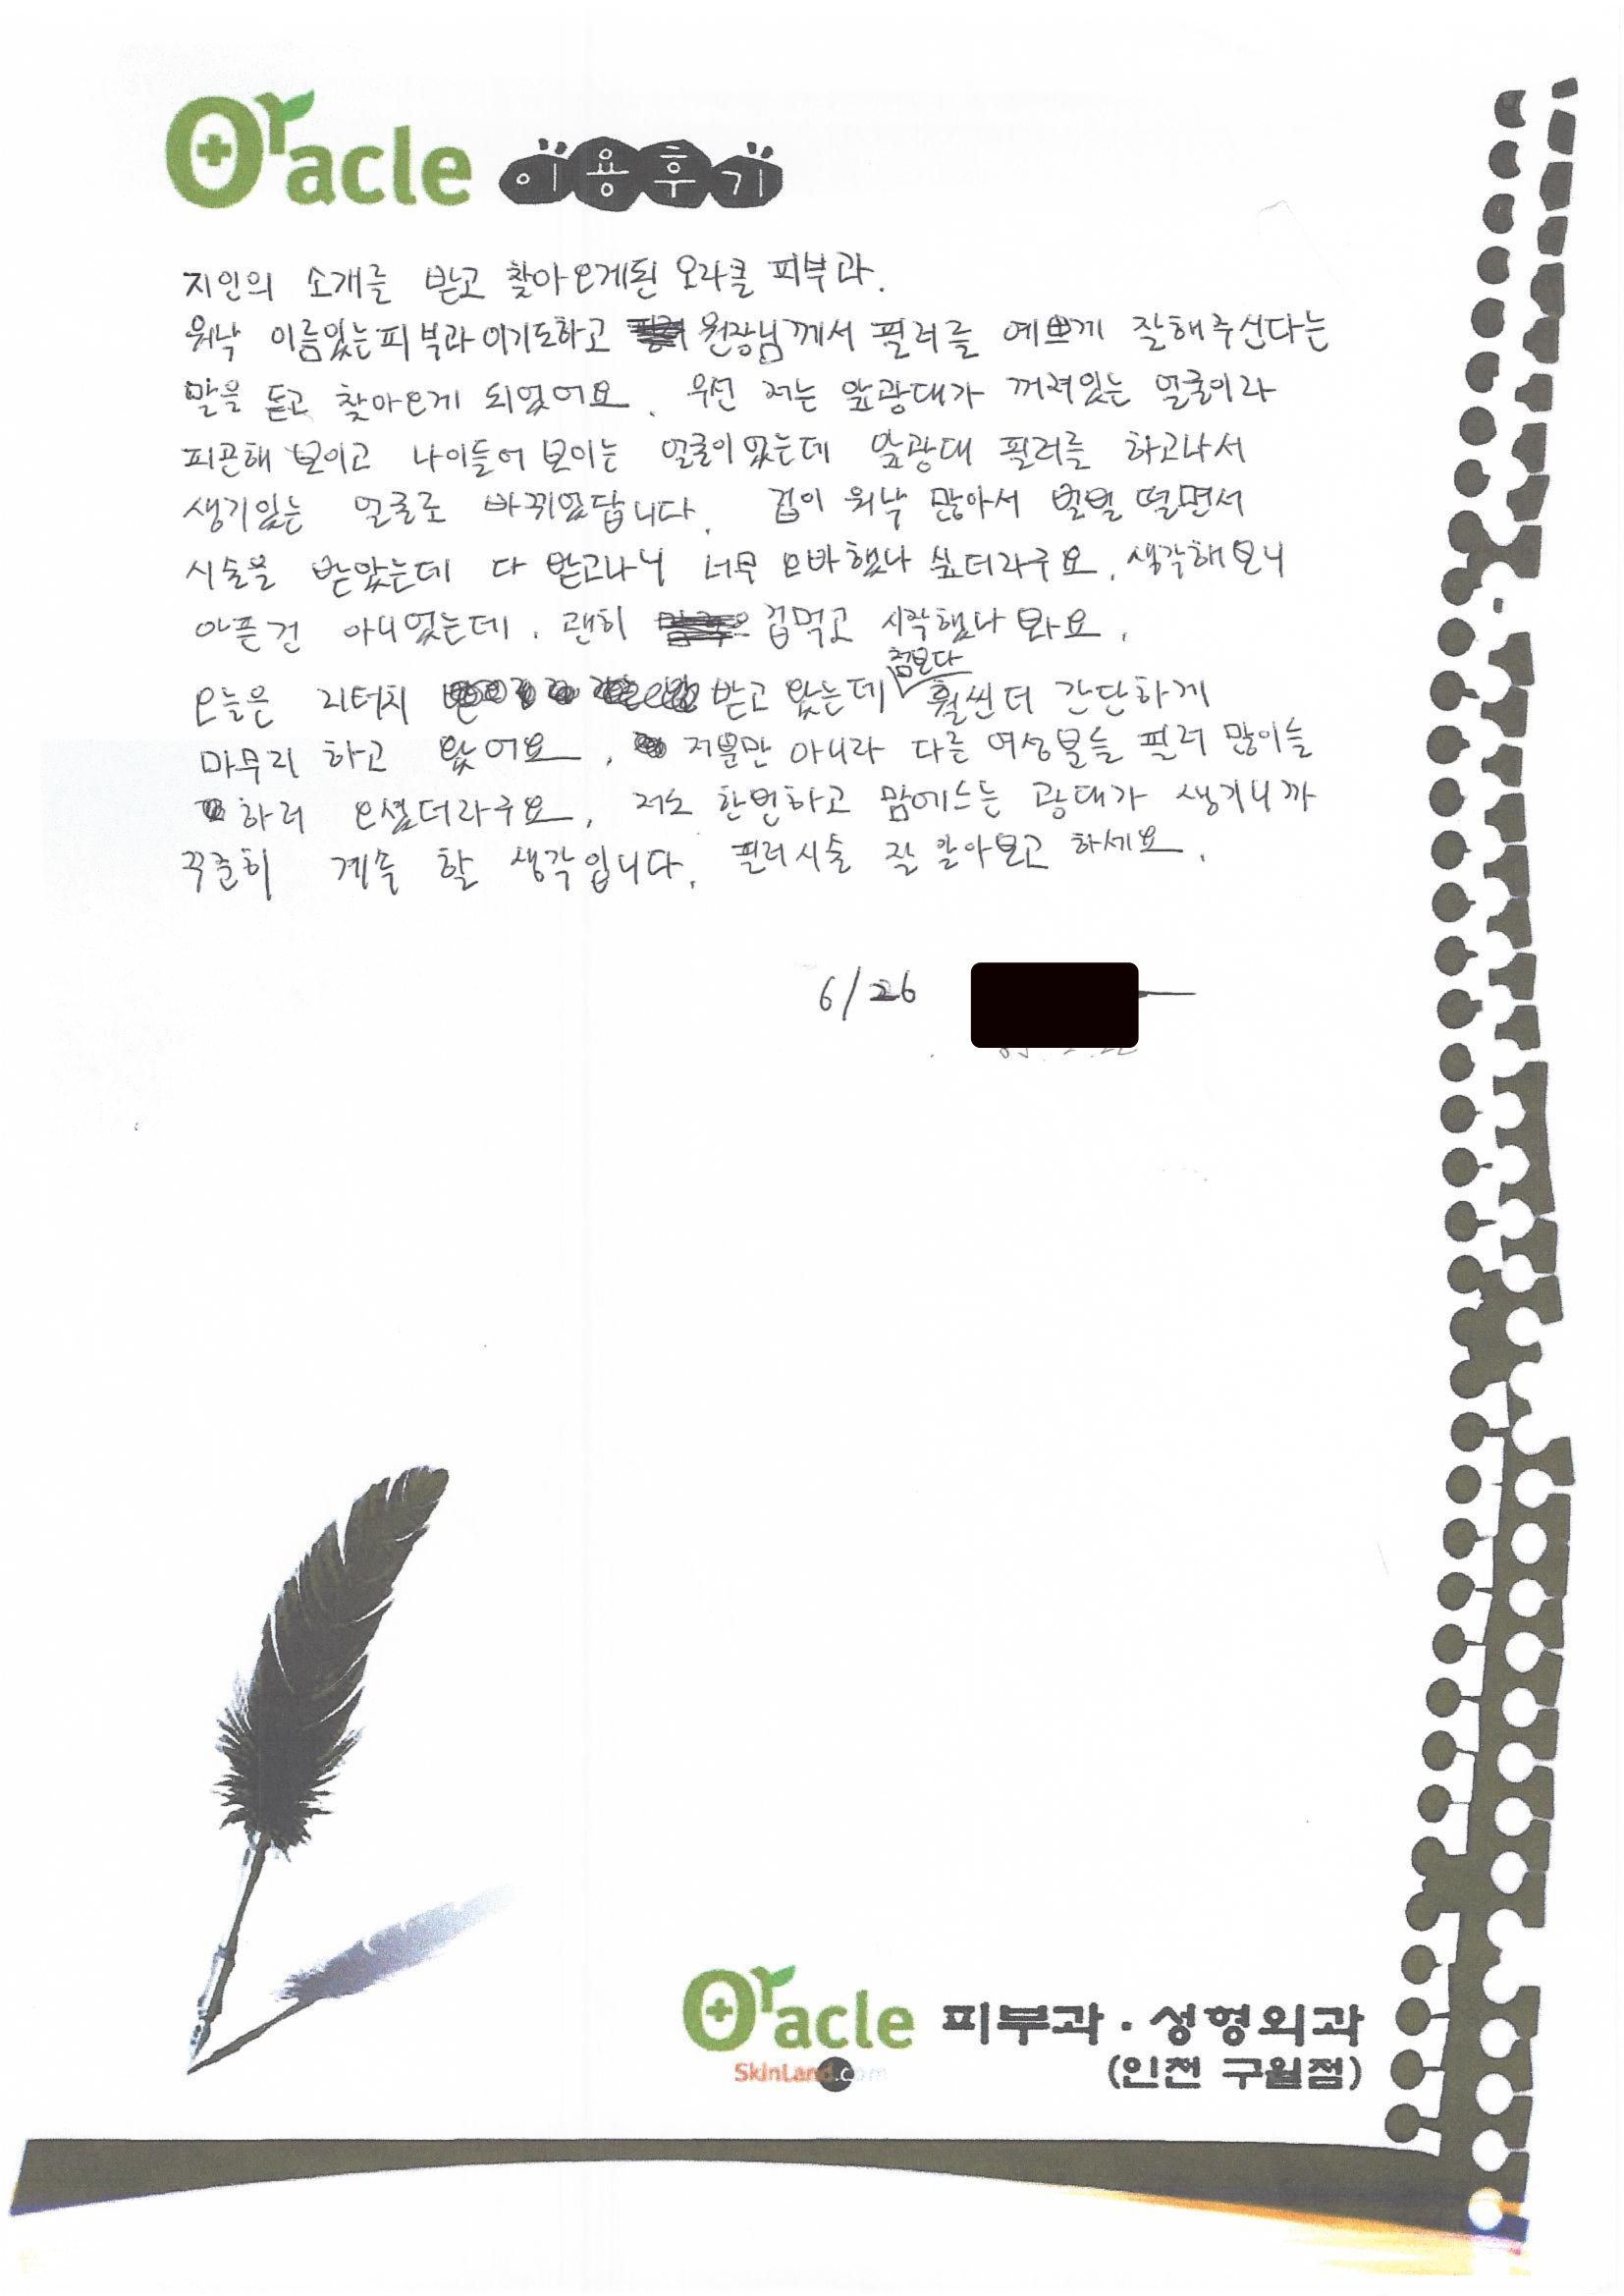 Oracle 이용후기
지인의 소개를 받고 찾아오게된 오라클 피부과.
워낙 이름있는피부과이기도하고 원장님께서 필러를 예쁘게 잘해주신다는
말을 듣고 찾아오게 되었어요. 우선 저는 앞광대가 꺼져있는 얼굴이라
피곤해 보이고 나이들어 보이는 얼굴이었는데 앞광대 필러를 하고나서
생기있는 얼굴로 바뀌었답니다. 겁이 워낙 많아서 벌벌 떨면서
시술을 받았는데 다 받고나니 너무 오바했나 싶더라구요. 생각해보니
아픈건 아니었는데. 괜히 겁먹고 시작했나 봐요.
첨보다
오늘은 리터치 받고 왔는데 훨씬더 간단하게
마무리 하고 왔어요. 저뿐만 아니라 다른 여성분들 필러 많이들
하러 오셨더라구요. 저도 한번하고 맘에드는 광대가 생기니까
꾸준히 계속 할 생각입니다. 필러시술 잘 알아보고 하세요.
6/26
Oracle 피부과 · 성형외과
SkinLand.com (인천 구월점)